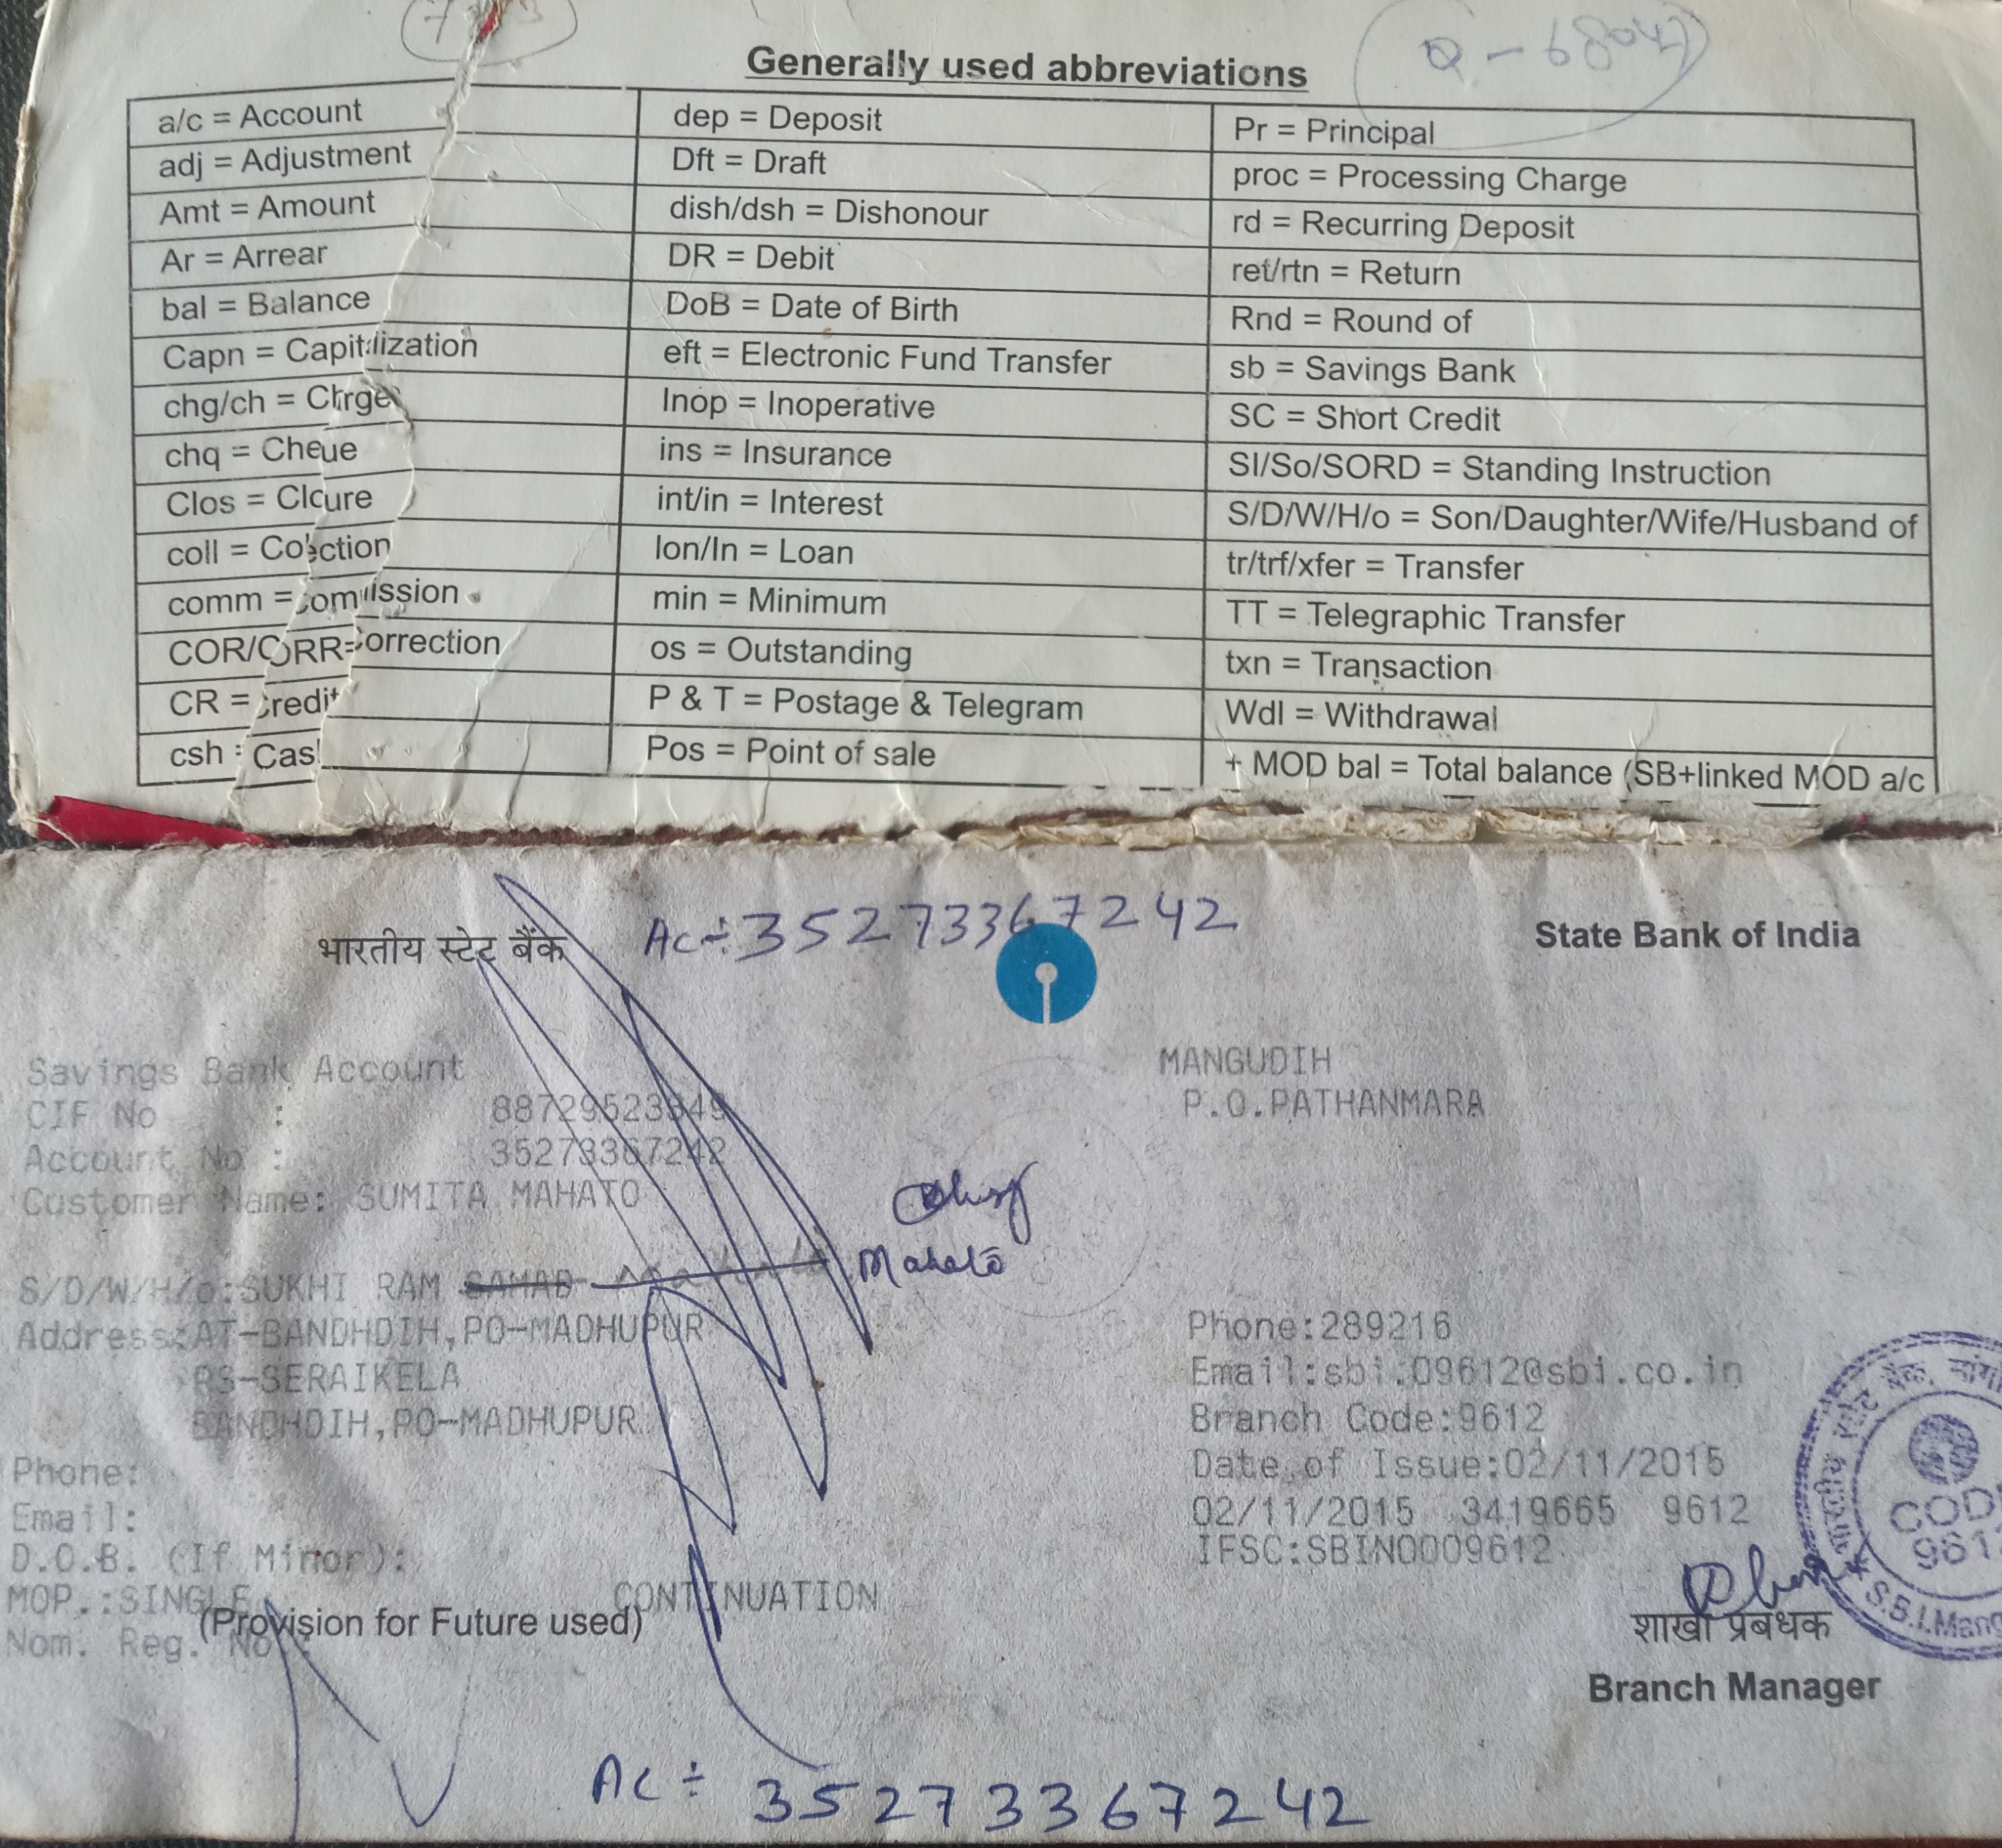 Generally used abbreviations
Q - 6804
a/c = Account
adj = Adjustment
Amt = Amount
Ar = Arrear
bal = Balance
Capn = Capitalization
chg/ch = Chrge
chq = Cheue
Clos = Cloure
coll = Colection
comm = Commission
COR/CORR=Correction
CR = Credit
csh = Cas
dep = Deposit
Dft = Draft
dish/dsh = Dishonour
DR = Debit
DoB = Date of Birth
eft = Electronic Fund Transfer
Inop = Inoperative
ins = Insurance
int/in = Interest
lon/ln = Loan
min = Minimum
os = Outstanding
P & T = Postage & Telegram
Pos = Point of sale
Pr = Principal
proc = Processing Charge
rd = Recurring Deposit
ret/rtn = Return
Rnd = Round of
sb = Savings Bank
SC = Short Credit
SI/So/SORD = Standing Instruction
S/D/W/H/o = Son/Daughter/Wife/Husband of
tr/trf/xfer = Transfer
TT = Telegraphic Transfer
txn = Transaction
Wdl = Withdrawal
+ MOD bal = Total balance (SB+linked MOD a/c
भारतीय स्टेट बैंक
Ac÷35273367242
State Bank of India
Savings Bank Account
CIF No :
Account No : 35273367242
Customer Name: SUMITA MAHATO
S/D/W/H/o:SUKHI RAM
Mahato
Address:AT-BANDHDIH,PO-MADHUPUR
PS-SERAIKELA
BANDHDIH,PO-MADHUPUR
Phone:
Email:
D.O.B. (If Minor):
MOP.:SINGLE
CONTINUATION
(Provision for Future used)
Nom. Reg. No
MANGUDIH
P.O.PATHANMARA
Phone:289216
Email:sbi.09612@sbi.co.in
Branch Code:9612
Date of Issue:02/11/2015
02/11/2015 3419665 9612
IFSC:SBIN0009612
CODE
9612
S.B.I.Mang
शाखा प्रबंधक
Branch Manager
Ac÷ 35273367242